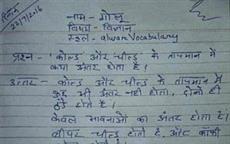 दिनांक
22/7/2016
नाम - गोलू
विषय - विज्ञान
स्कूल - alwarevocabulary
प्रश्न - कोल्ड और चील्ड के तापमान में
क्या अंतर होता है ।
उत्तर - कोल्ड और चील्ड के तापमान में
कुछ भी अंतर नहीं होता, दोनों ही
ठंडे होते है ।
केवल भावनाओं का अंतर होता है ।
बीयर चील्ड होती है, और काफी